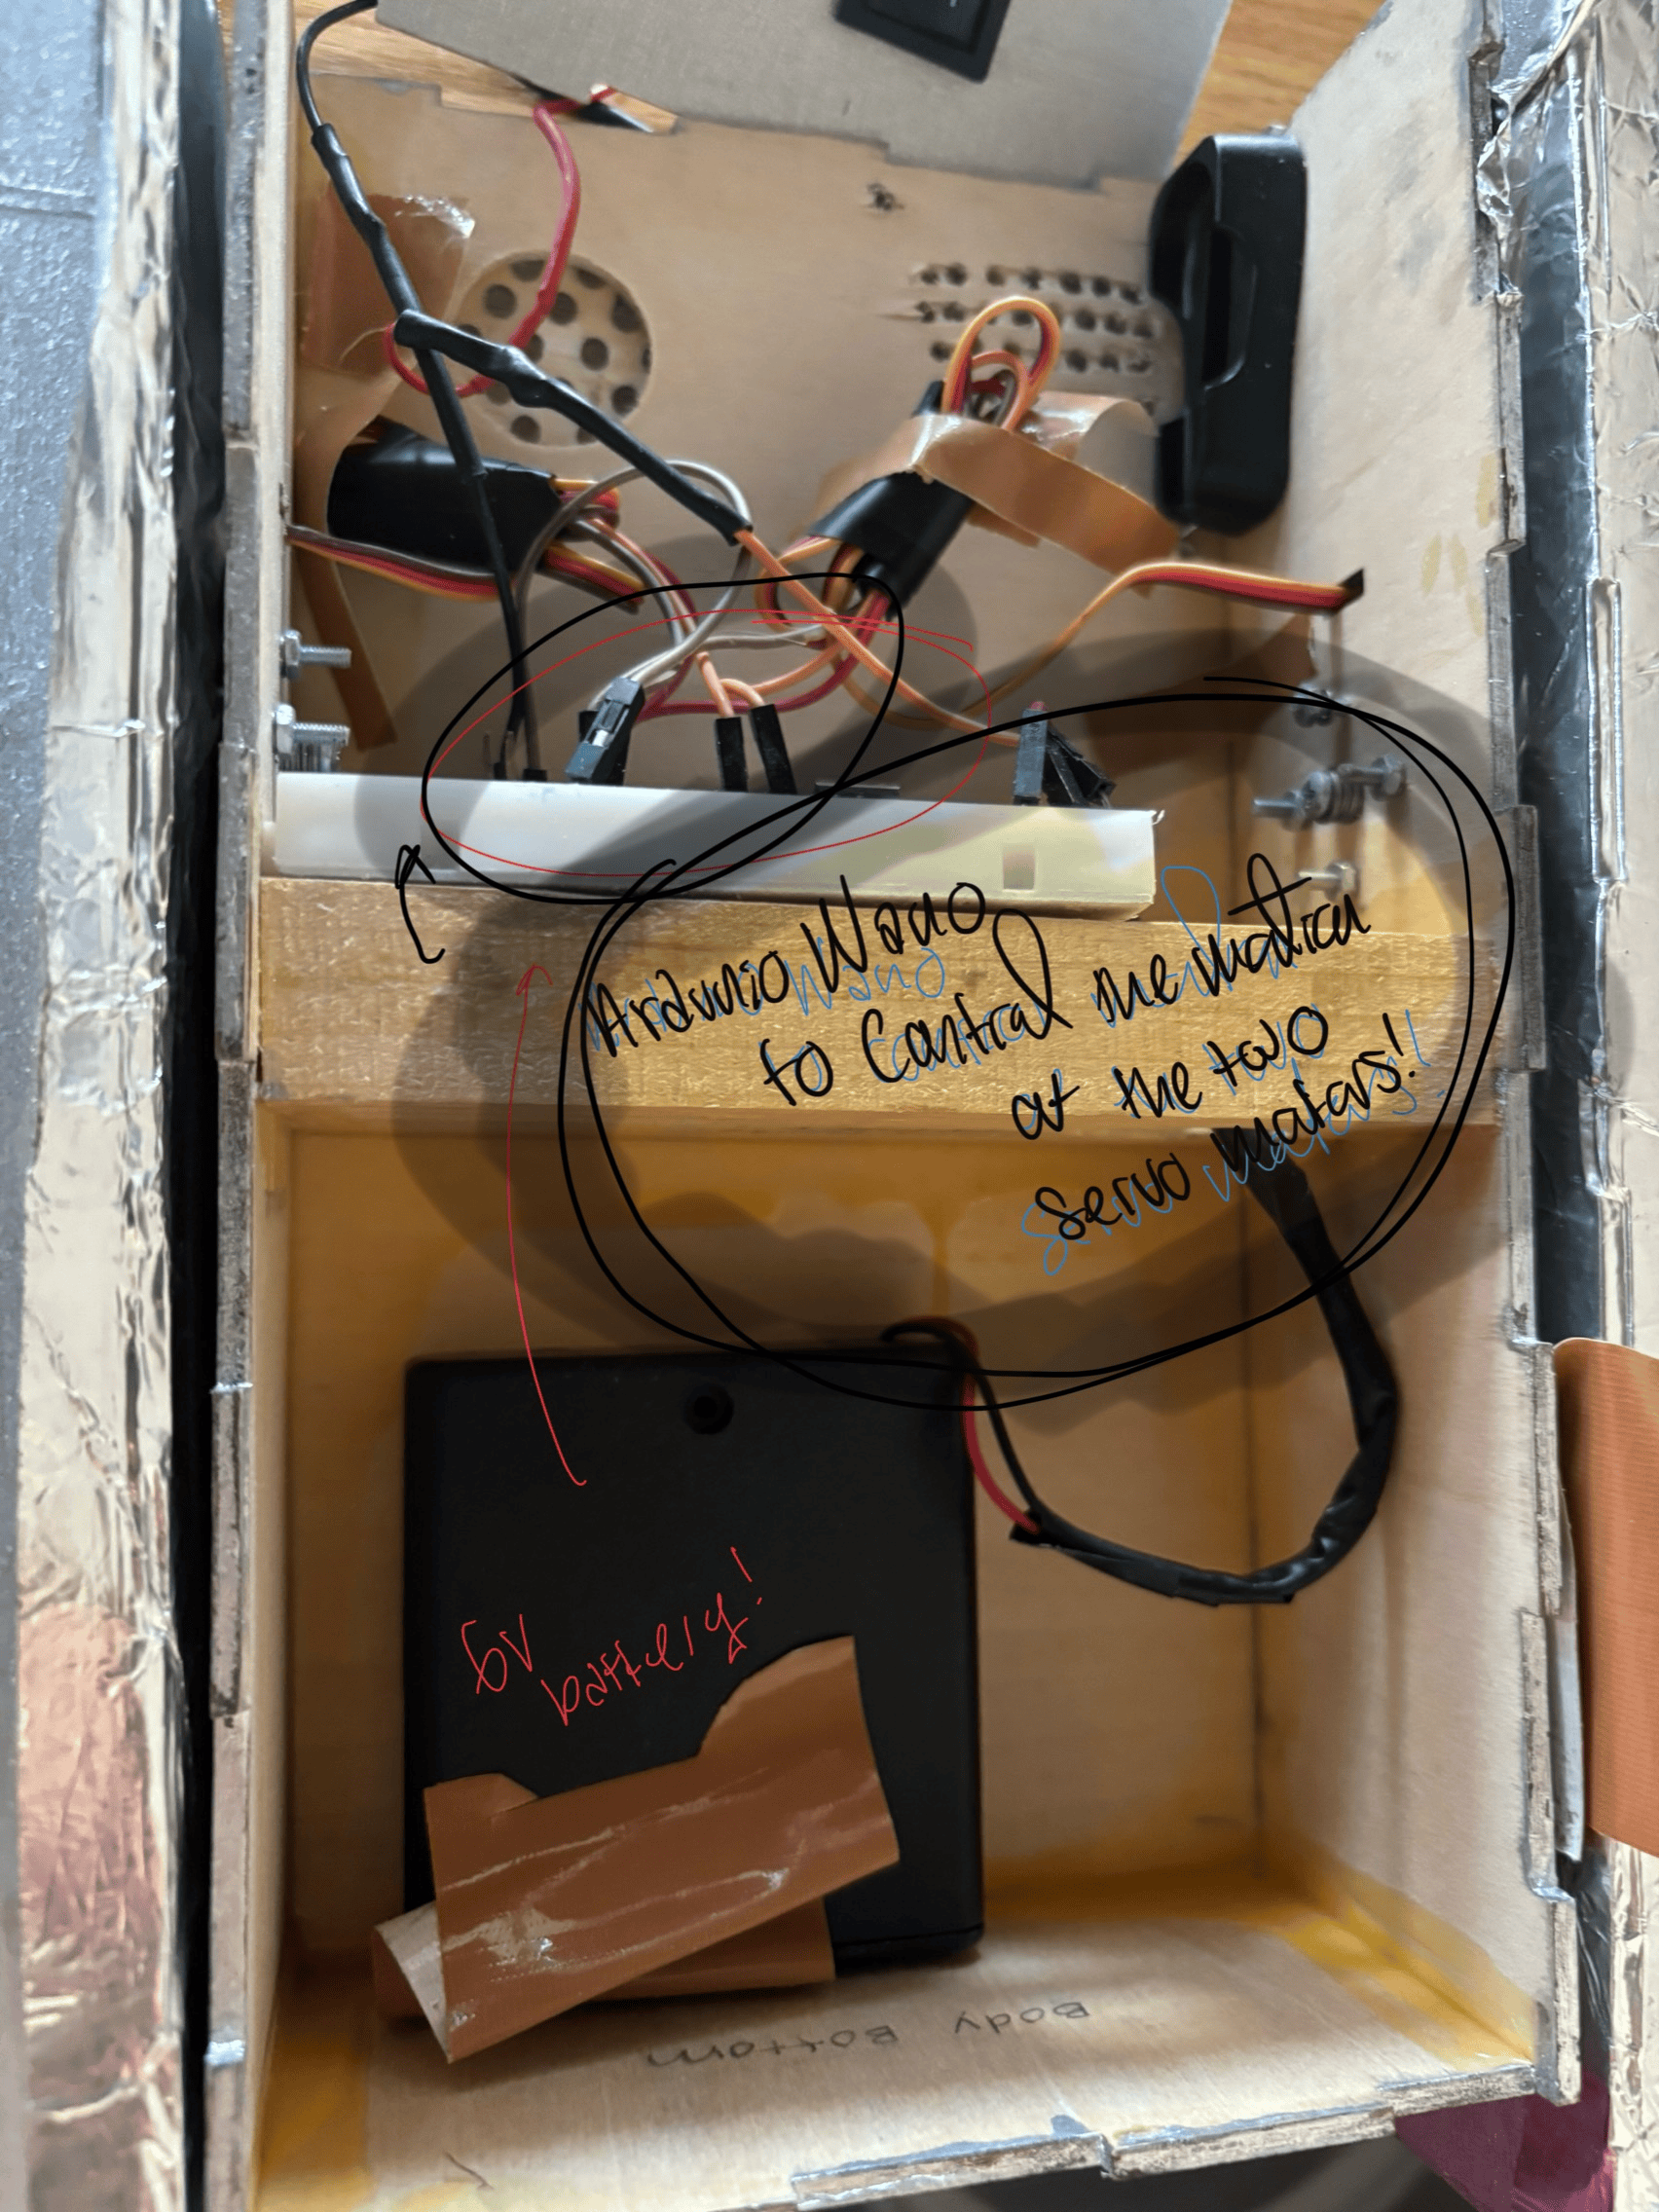 Arduino Nano
to Control the motion
of the two
servo motors!!
6v
battery!
Body Bottom